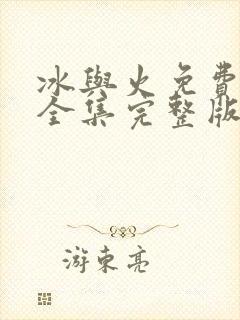 冰與火免費
全集完整版
游東亮